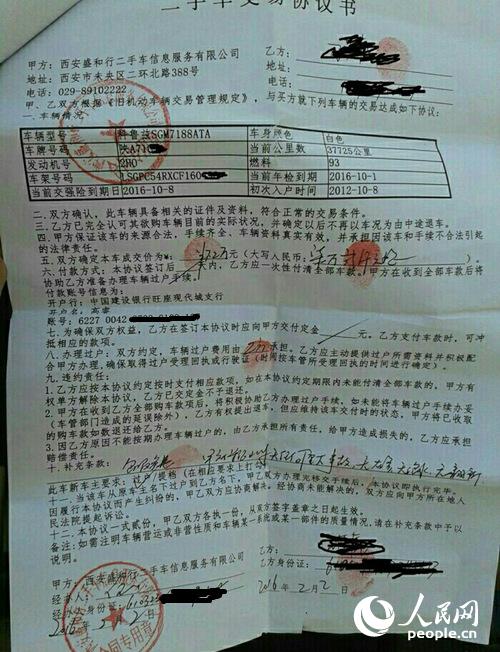 二手车交易协议书
甲方：西安盛和行二手车信息服务有限公司
地址：西安市未央区二环北路388号
电话：029-89102222
乙方：
地址：
电话：
甲、乙双方根据《旧机动车辆交易管理规定》，与买方就下列车辆的交易达成如下协议：
一.车辆情况：
车辆型号 科鲁兹SGM7188ATA 车身颜色 白色
车牌号码 陕A71 当前公里数 37725公里
发动机号 2H0 燃料 93
车架号码 LSGPC54RXCF160 当前年检到期 2016-10-1
当前交强险到期日 2016-10-8 初次入户时间 2012-10-8
二.双方确认，此车辆具备相关的证件及资料，符合正常的交易条件。
三.乙方已完全认可其欲购车辆目前的实际状况，并确定以后不再以车况为由中途退车。
四.甲方保证该车的来源合法，手续齐全、车辆资料真实有效，并承担因该车和手续不合法引起
的法律责任。
五.双方确定本车成交价为¥： 元（大写人民币：
六.付款方式：本协议签订后 天内，乙方应一次性付清全部车款，甲方在收到全部车款后将
协助乙方准备办理车辆过户手续。
付款账号信息为：
开户行：中国建设银行旺座现代城支行
开户名：高睿
账号：6227 0042
七.为确保双方权益，乙方在签订本协议时应向甲方交付定金 元。乙方支付车款时，可冲
抵相应的款项。
八.办理过户：双方约定，车辆过户费用由 承担。乙方应主动提供过户所需资料并积极配
合甲方办理，确保取得过户受理回执或行驶证（时间按车管所受理回执的时间进行确定）。
九.违约责任：
1.乙方应按本协议约定按时支付相应款项，如在本协议约定期限内未能付清全部车款的，甲方有
权单方解除本协议，乙方已交定金不予退还。
2.甲方在收到乙方全部购车款项后，将积极协助乙方办理过户手续，如未能将车辆过户手续办妥
（车管部门造成的延误除外），乙方有权提出退车，但应维持该车交付时的状态，甲方将已收取
的购车款如数退还给乙方。
3.因乙方原因不能按期办理车辆过户的，由乙方承担所有责任，给甲方造成损失的，乙方应承担
赔偿责任。
十.补充条款：
此车新车主要求：过户/提档（在相应要求上打
十一.当该车从原车主名下过户到乙方名下，甲乙双方办理完移交手续后，本协议即执行完毕。
因履行本协议而产生纠纷的，甲乙双方应协商解决。经协商未能解决的，双方应向甲方所在地人
民法院提起诉讼。
十二.本协议一式贰份，甲乙双方各执一份，从双方签字盖章之日起生效。
备注：如需注明车辆营运或非营性质和车辆某一系统或某一部件的质量情况，请在补充条款中予以
说明。
甲方：西安盛和行二手车信息服务有限公司
经办人：
经办人身份证：
2016年2月2日
乙方：
乙方身份证：
2016年2月2日
合同专用章
人民网
people.cn